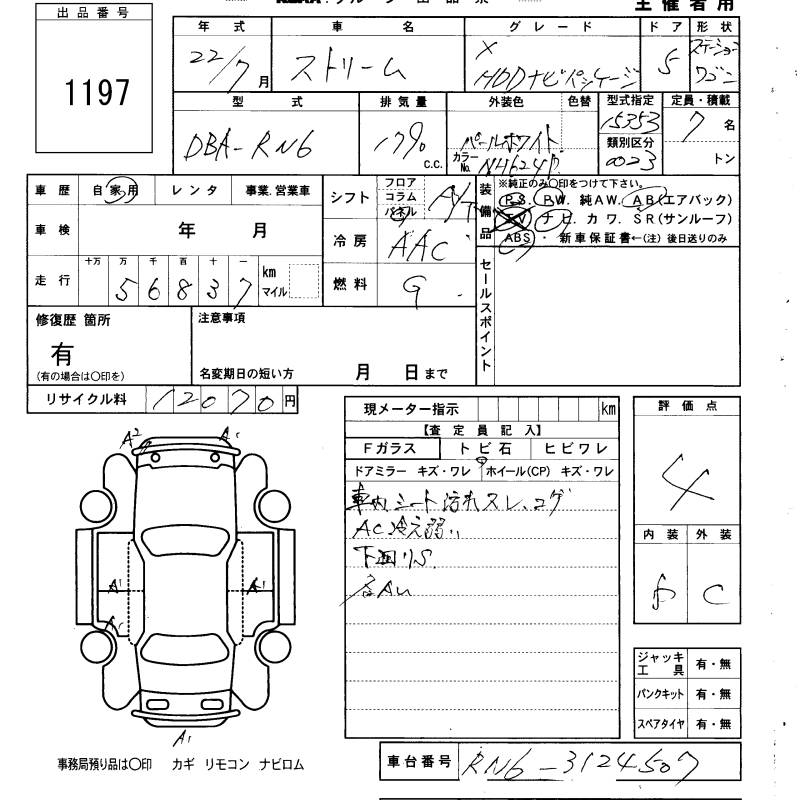 主催者用
出品番号
1197
年式 車名 グレード ドア 形状
22/7月 ストリーム X HDDナビパッケージ 5 ステーションワゴン
型式 排気量 外装色 色替 型式指定 定員・積載
DBA-RN6 1790 c.c. パールホワイト 15353 7名
カラーNo. NH624P 類別区分 0023 トン
車歴 自家用 レンタ 事業.営業車
車検 年 月
走行 十万 万 千 百 十 一 km マイル
5 6 8 3 7
シフト フロア コラム パネル A/T
冷房 AAC
燃料 G
装備品 ※純正のみ〇印をつけて下さい。
P.S. P.W. 純AW. AB(エアバック)
TV ナビ. カワ. SR(サンルーフ)
ABS ・ 新車保証書←(注) 後日送りのみ
セールスポイント
修復歴 箇所
有
(有の場合は〇印を)
注意事項
名変期日の短い方 月 日まで
リサイクル料 12070円
現メーター指示 km
【査定員記入】
Fガラス トビ石 ヒビワレ
ドアミラー キズ・ワレ ホイール(CP) キズ・ワレ
車内シート汚れスレ、コゲ
AC冷え弱い
下回りS
各AU
評価点
4
内装 外装
C
A2 A1
A1 A1
A1
A1
ジャッキ工具 有・無
パンクキット 有・無
スペアタイヤ 有・無
事務局預り品は〇印 カギ リモコン ナビロム
車台番号 RN6-3124507